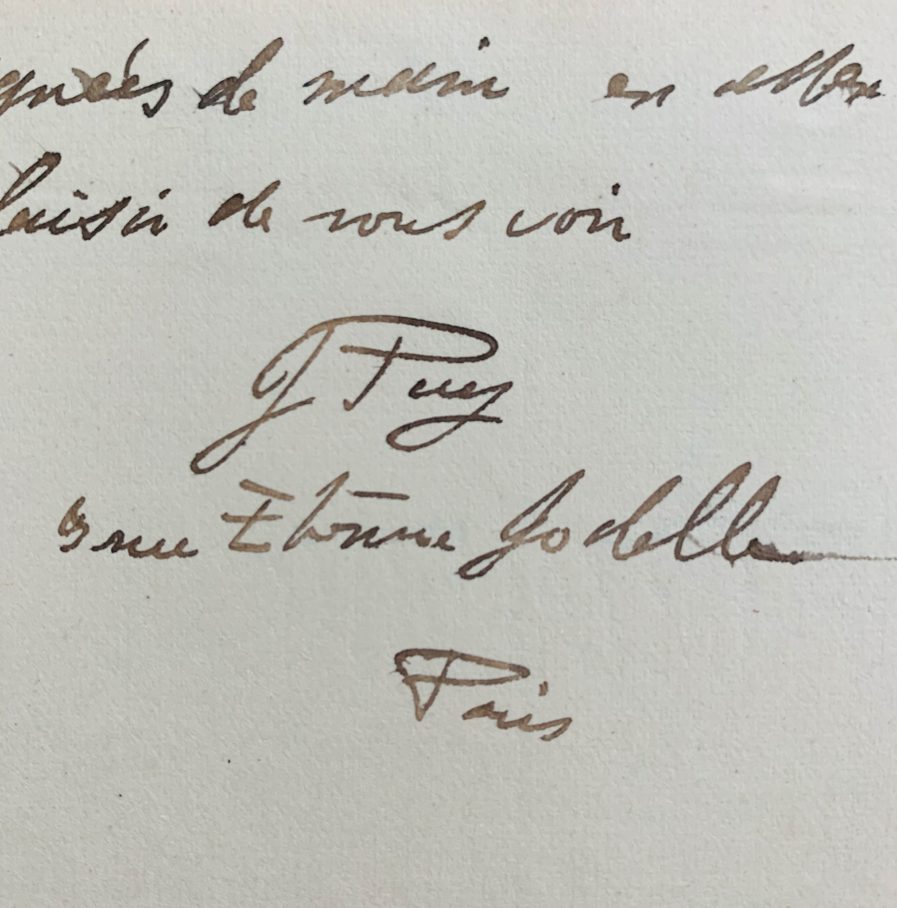 gnées de main en atten
laisir de vous voir
J Puy
9 rue Etienne Jodelle
Paris